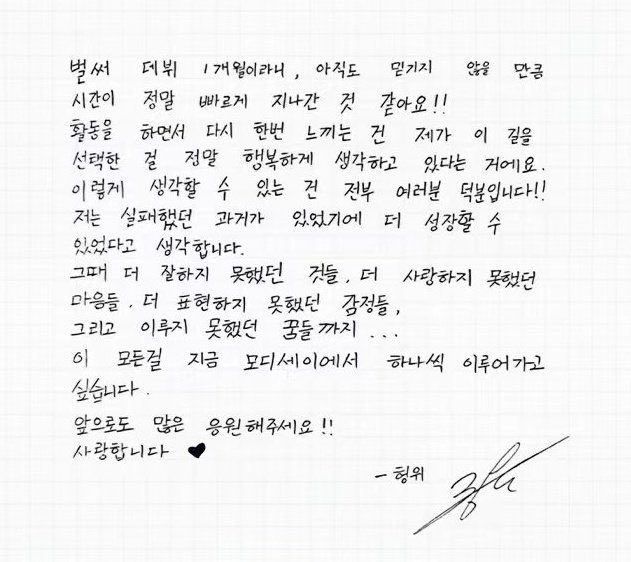 벌써 데뷔 1개월이라니, 아직도 믿기지 않을 만큼
시간이 정말 빠르게 지나간 것 같아요!!
활동을 하면서 다시 한번 느끼는 건 제가 이 길을
선택한 걸 정말 행복하게 생각하고 있다는 거에요.
이렇게 생각할 수 있는 건 전부 여러분 덕분입니다!!
저는 실패했던 과거가 있었기에 더 성장할 수
있었다고 생각합니다.
그때 더 잘하지 못했던 것들, 더 사랑하지 못했던
마음들, 더 표현하지 못했던 감정들,
그리고 이루지 못했던 꿈들까지...
이 모든걸 지금 모디세이에서 하나씩 이루어가고
싶습니다.
앞으로도 많은 응원해주세요!!
사랑합니다 ♥
- 헝위